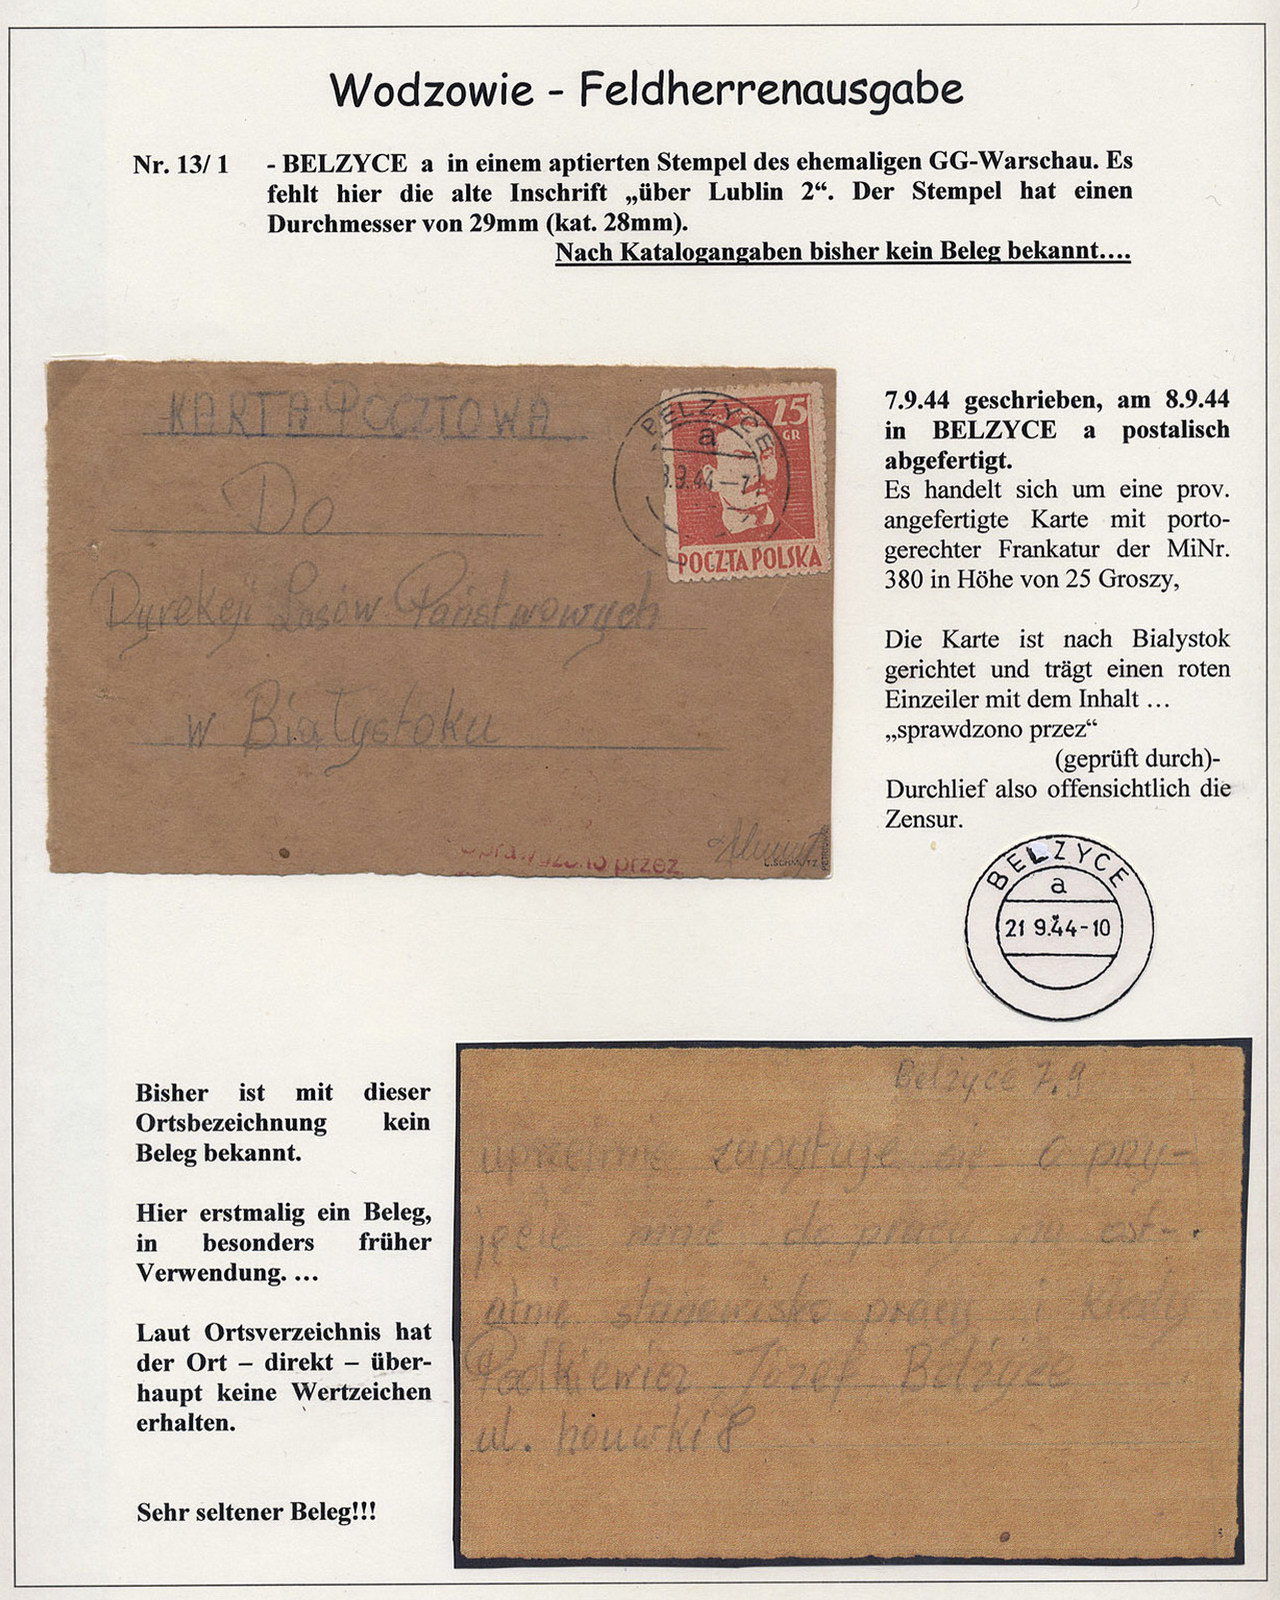 Wodzowie - Feldherrenausgabe
Nr. 13/ 1 - BELZYCE a in einem aptierten Stempel des ehemaligen GG-Warschau. Es
fehlt hier die alte Inschrift „über Lublin 2“. Der Stempel hat einen
Durchmesser von 29mm (kat. 28mm).
Nach Katalogangaben bisher kein Beleg bekannt….
KARTA POCZTOWA
Do
Dyrekcji Lasów Państwowych
w Białystoku
BELZYCE
a
8.9.44-7
25
GR
POCZTA POLSKA
sprawdzono przez
L.SCHMUTZ
7.9.44 geschrieben, am 8.9.44
in BELZYCE a postalisch
abgefertigt.
Es handelt sich um eine prov.
angefertigte Karte mit porto-
gerechter Frankatur der MiNr.
380 in Höhe von 25 Groszy,
Die Karte ist nach Bialystok
gerichtet und trägt einen roten
Einzeiler mit dem Inhalt …
„sprawdzono przez“
(geprüft durch)-
Durchlief also offensichtlich die
Zensur.
BELZYCE
a
21 9.44-10
Bisher ist mit dieser
Ortsbezeichnung kein
Beleg bekannt.
Hier erstmalig ein Beleg,
in besonders früher
Verwendung. …
Laut Ortsverzeichnis hat
der Ort – direkt – über-
haupt keine Wertzeichen
erhalten.
Sehr seltener Beleg!!!
Belzyce 7.9
uprzejmie zapytuje się o przy-
jęcie mnie do pracy na ost-
atnie stanowisko pracy i kiedy
Podkiewicz Józef Belżyce
ul. 8